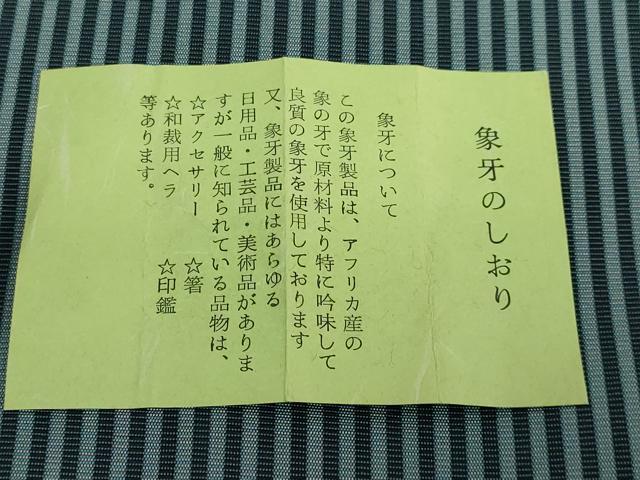 象牙のしおり
象牙について
この象牙製品は、アフリカ産の
象の牙で原材料より特に吟味して
良質の象牙を使用しております
又、象牙製品にはあらゆる
日用品・工芸品・美術品がありま
すが一般に知られている品物は、
☆アクセサリー　☆箸
☆和裁用ヘラ　☆印鑑
等あります。